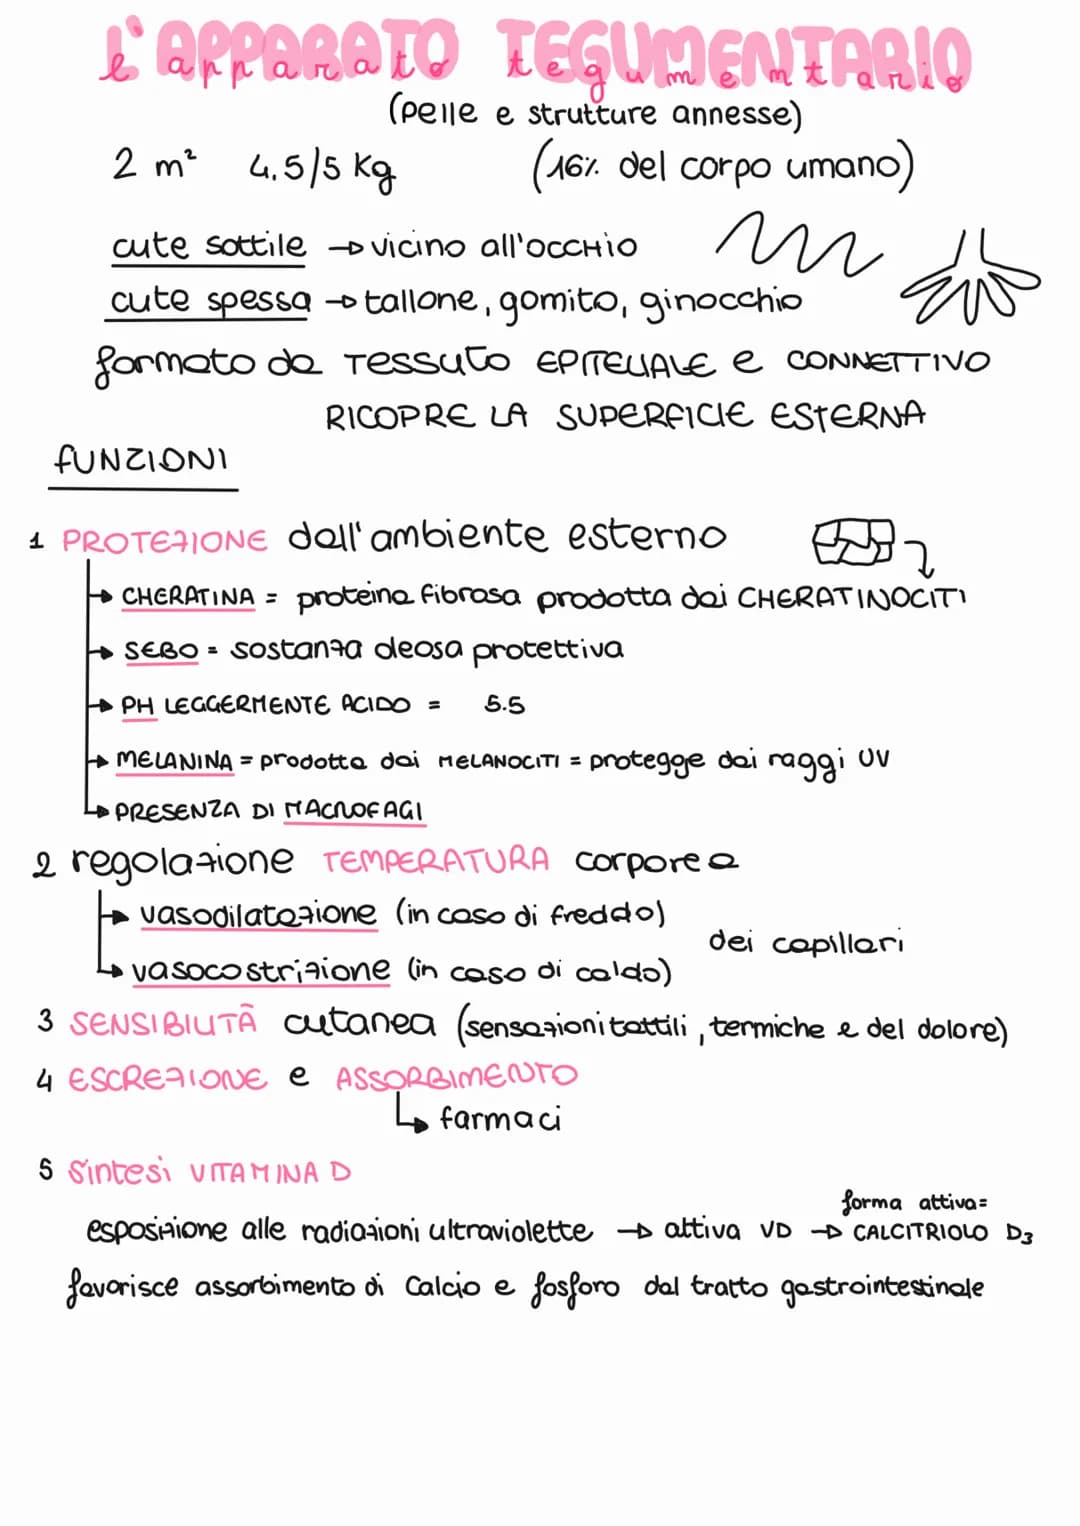 L'APPARATO TEGUMENTARIO
l'apparato tegumentario
(pelle e strutture annesse)
2 m² 4,5/5 Kg (16% del corpo umano)
cute sottile → vicino all'occHio
cute spessa → tallone, gomito, ginocchio
formato da Tessuto EPITELIALE e CONNETTIVO
RICOPRE LA SUPERFICIE ESTERNA
fUNZIONI
1 PROTEZIONE dall'ambiente esterno
→ CHERATINA = proteina fibrosa prodotta dai CHERATINOCITI
→ SEBO = sostanza oleosa protettiva
→ PH LEGGERMENTE ACIDO = 5.5
→ MELANINA = prodotta dai MELANOCITI = protegge dai raggi UV
→ PRESENZA DI MACROFAGI
2 regolazione TEMPERATURA corporea
→ vasodilatazione (in caso di freddo)
dei capillari
→ vasocostrizione (in caso di caldo)
3 SENSIBILITÀ cutanea (sensazioni tattili, termiche e del dolore)
4 ESCREZIONE e ASSORBIMENTO
↳ farmaci
5 Sintesi VITAMINA D
forma attiva=
esposizione alle radiazioni ultraviolette → attiva VD → CALCITRIOLO D3
favorisce assorbimento di Calcio e fosforo dal tratto gastrointestinale